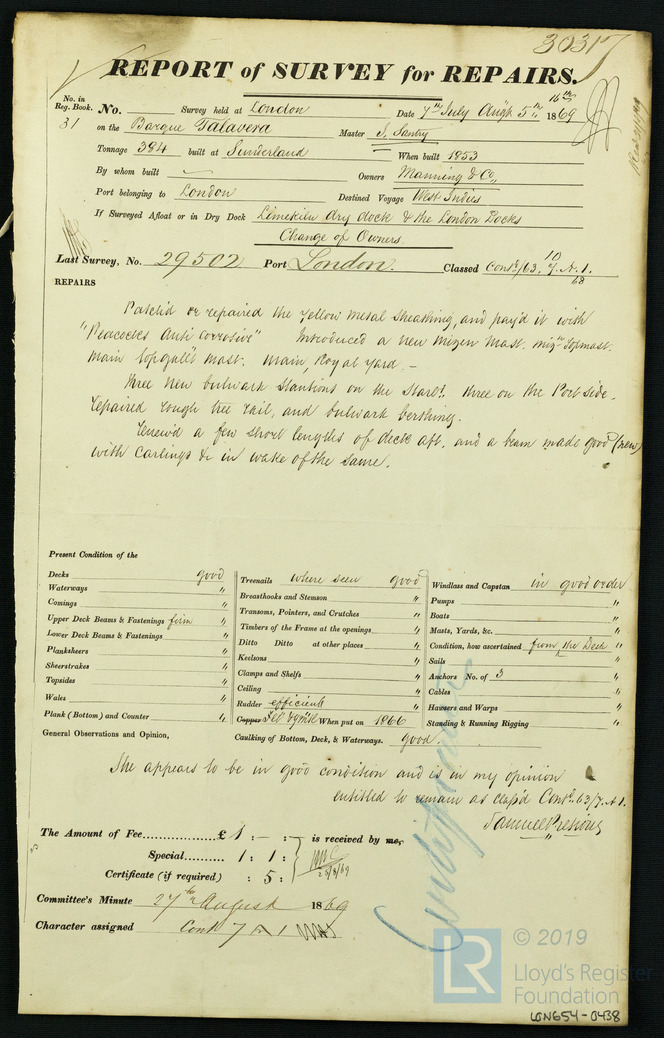 30317
REPORT of SURVEY for REPAIRS.
No. in Reg. Book. No. Survey held at London Date 7th July Augst 5th 16th 1869
31 on the Barque Talavera Master J. Santry
Tonnage 384 built at Sunderland When built 1853
By whom built Owners Manning & Co,
Port belonging to London Destined Voyage West Indies
If Surveyed Afloat or in Dry Dock Limekiln dry dock & the London Docks
Change of Owners
Last Survey, No. 29502 Port London. Classed Contd/63. 7. A. 1. 10/68
REPAIRS
Patch'd or repaired the Yellow Metal Sheathing, and pay'd it with
"Peacockes Anti corrosive" Introduced a new Mizen Mast. miz. Topmast.
main topgallt mast. Main, Royal yard. —
Three New bulwark Stantions on the Starbd. three on the Port side.
repaired rough tree rail, and bulwark berthing.
Renew'd a few short lengths of deck aft. and a beam made good (new)
with Carlings &c in wake of the same.
Present Condition of the
Decks good
Waterways "
Comings "
Upper Deck Beams & Fastenings firm "
Lower Deck Beams & Fastenings "
Planksheers "
Sheerstrakes "
Topsides "
Wales "
Plank (Bottom) and Counter "
Treenails where seen good
Breasthooks and Stemson "
Transoms, Pointers, and Crutches "
Timbers of the Frame at the openings "
Ditto Ditto at other places "
Keelsons "
Clamps and Shelfs "
Ceiling "
Rudder efficient "
Copper When put on 1866
Caulking of Bottom, Deck, & Waterways. good.
Windlass and Capstan in good order
Pumps "
Boats "
Masts, Yards, &c. "
Condition, how ascertained from the Deck "
Sails "
Anchors No. of 3 "
Cables "
Hawsers and Warps "
Standing & Running Rigging "
General Observations and Opinion,
She appears to be in good condition and is in my opinion
entitled to remain as class'd Contd. 63/7. A 1.
Samuel Pretious
The Amount of Fee £ 1 : - : is received by me,
Special 1 : 1 :
Certificate (if required) : 5 :
23/8/69
Committee's Minute 27th August 1869
Character assigned Contd 7 A 1
© 2019
LR
Lloyd's Register
Foundation
LON654-0438